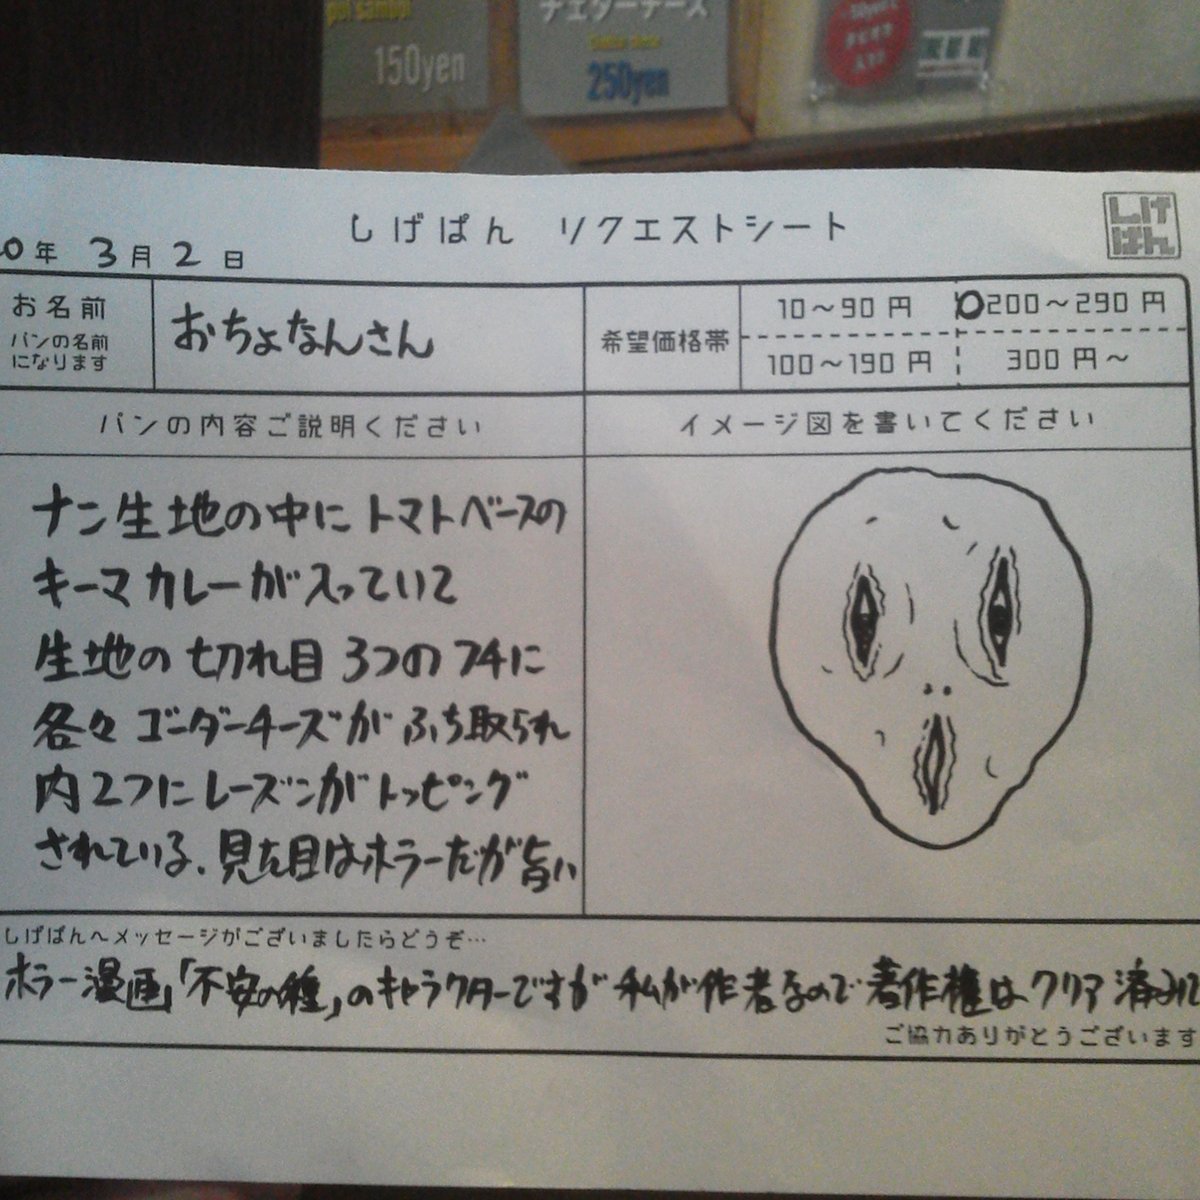 150yen
チェダーチーズ
250yen
しげぱん リクエストシート
しげ
ぱん
0年 3月2日
お名前
パンの名前
になります
おちょなんさん
希望価格帯
10～90円
200～290円
100～190円
300円～
パンの内容ご説明ください
イメージ図を書いてください
ナン生地の中にトマトベースの
キーマカレーが入っていて
生地の切れ目3つのフチに
各々ゴーダーチーズがふち取られ
内2つにレーズンがトッピング
されている.見た目はホラーだが旨い
しげぱんへメッセージがございましたらどうぞ…
ホラー漫画「不安の種」のキャラクターですが私が作者なので著作権はクリア済みに
ご協力ありがとうございます